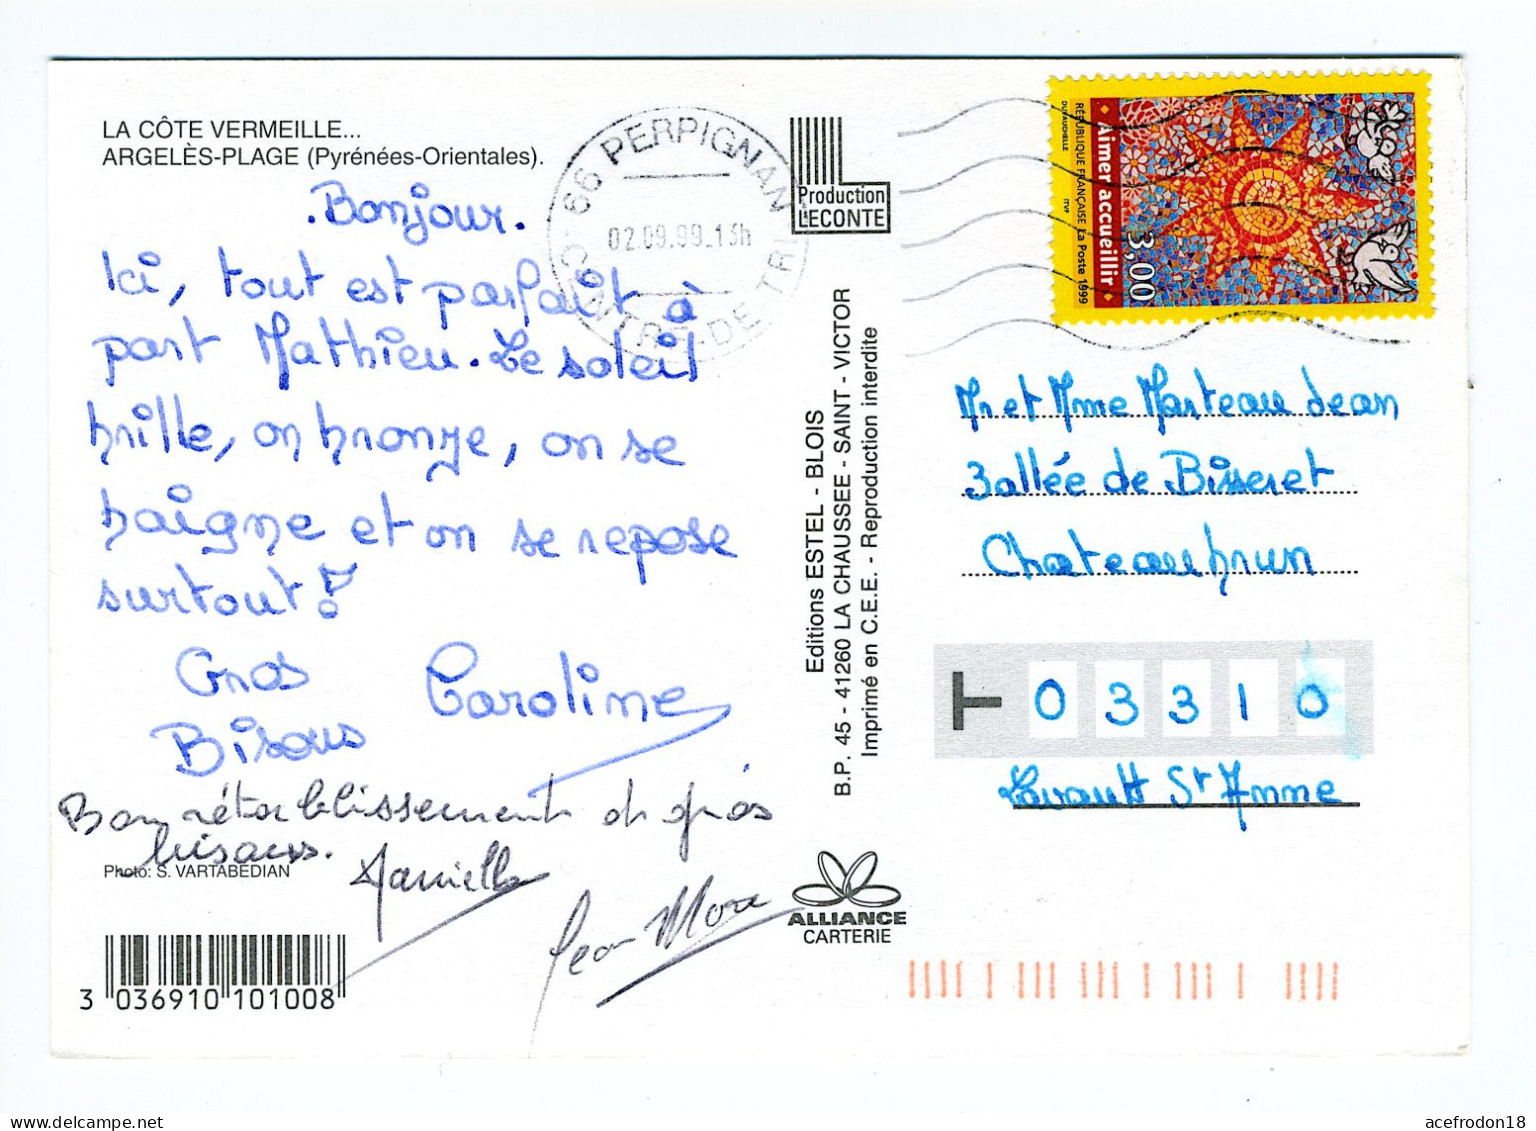 LA CÔTE VERMEILLE...
ARGELÈS-PLAGE (Pyrénées-Orientales).
.Bonjour.
Ici, tout est parfait à
part Mathieu. Le soleil
brille, on bronze, on se
baigne et on se repose
surtout !
Gros
Bisous
Caroline
Bon rétablissement de gros
bisous.
Danielle
Jean Marc
Photo: S. VARTABEDIAN
3 036910 101008
66 PERPIGNAN
02.09.99.13h
CENTRE DE TRI
Production
LECONTE
Editions ESTEL - BLOIS
B.P. 45 - 41260 LA CHAUSSEE - SAINT - VICTOR
Imprimé en C.E.E. - Reproduction interdite
ALLIANCE
CARTERIE
Aimer accueillir
3,00
RÉPUBLIQUE FRANÇAISE La Poste 1999
ITVF
Mr et Mme Marteau Jean
3 allée de Bisseret
Chateaubrun
T 0 3 3 1 0
Lavault St Anne
acefrodon18